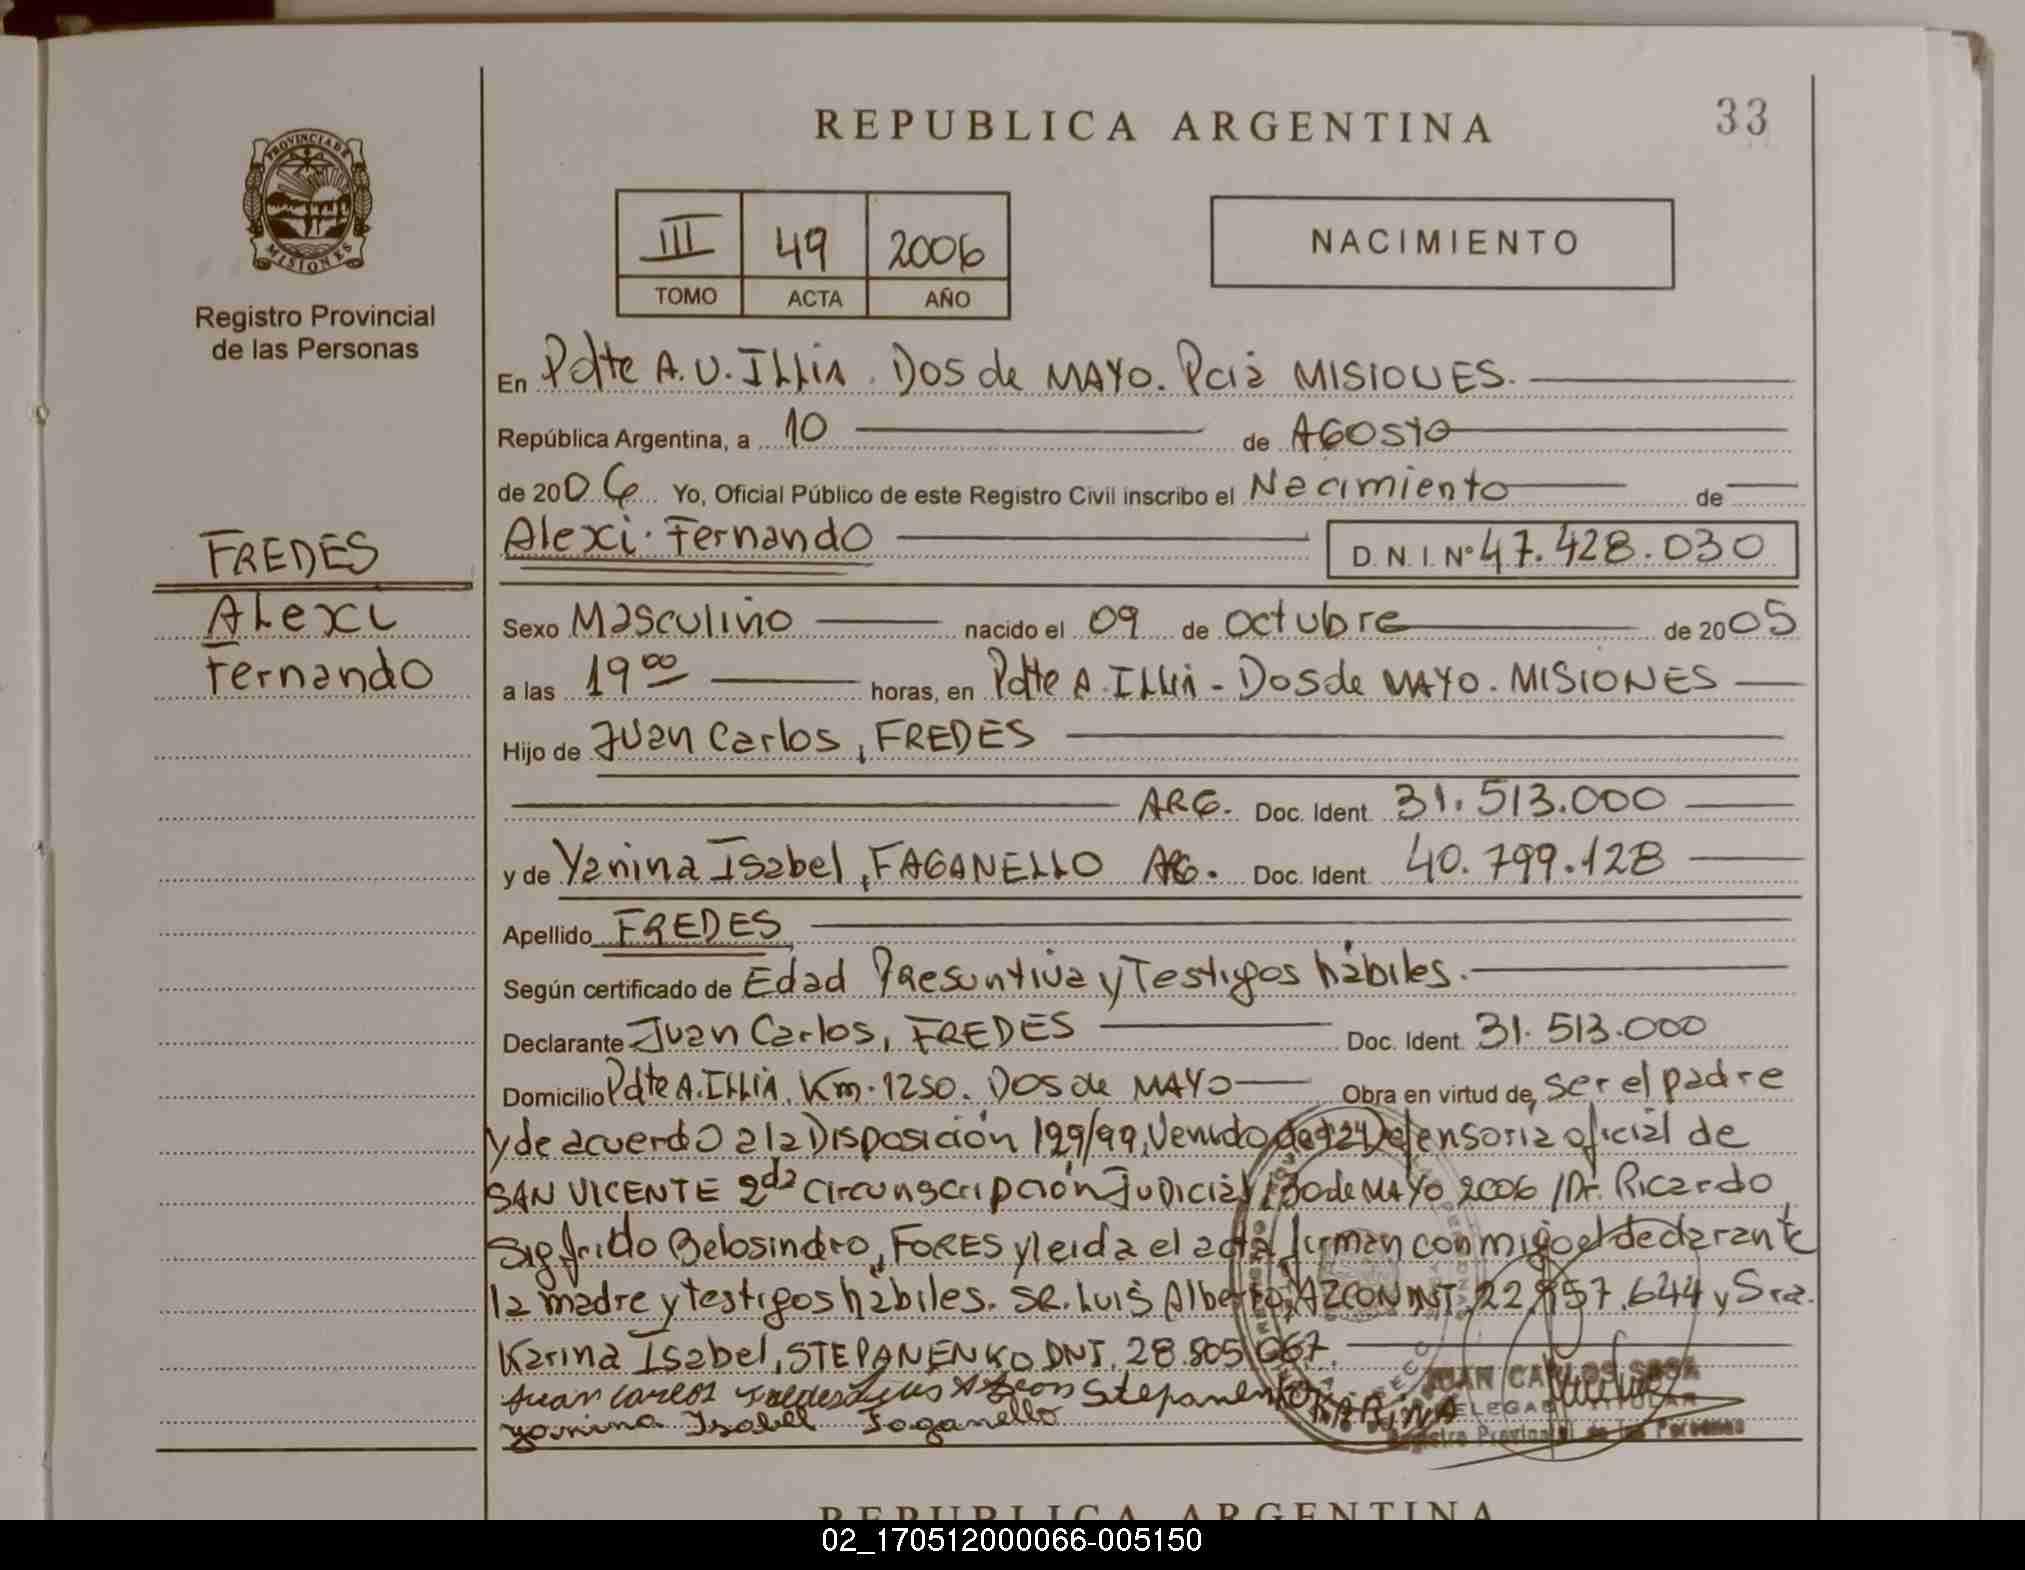 REPUBLICA ARGENTINA
33
PROVINCIA DE MISIONES
Registro Provincial
de las Personas
III 49 2006
TOMO ACTA AÑO
NACIMIENTO
En Pdte A.U. ILLIA. DOS de MAYO. Pcia MISIONES.
República Argentina, a 10 de AGOSTO
de 2006 Yo, Oficial Público de este Registro Civil inscribo el Nacimiento de
FREDES
Alexi
Fernando
Alexi Fernando D. N. I. Nº 47.428.030
Sexo Masculino nacido el 09 de octubre de 2005
a las 19 00 horas, en Pdte A. ILLIA - DOS de MAYO. MISIONES
Hijo de Juan Carlos, FREDES
ARG. Doc. Ident. 31.513.000
y de Yanina Isabel, FAGANELLO ARG. Doc. Ident. 40.799.128
Apellido FREDES
Según certificado de Edad Presuntiva y Testigos hábiles.
Declarante Juan Carlos, FREDES Doc. Ident. 31.513.000
Domicilio Pdte A. ILLIA. Km. 1250. DOS de MAYO Obra en virtud de, ser el padre
y de acuerdo a la Disposición 199/99, Venido de Defensoria oficial de
SAN VICENTE 2da Circunscripción Judicial, 30 de MAYO 2006 / Dr. Ricardo
Sigfrido Belosindro, FORES y leida el acta firman conmigo el declarante
la madre y testigos hábiles. SR. Luis Alberto, AZCON DNI. 22.957.644 y Sra.
Karina Isabel, STEPANENKO DNI. 28.805.067.
Juan Carlos Fredes Luis Azcon Stepanenko KARINA
Yanina Isabel Faganello
JUAN CARLOS SOSA
DELEGADO TITULAR
Registro Provincial de las Personas
REPUBLICA ARGENTINA
02_170512000066-005150